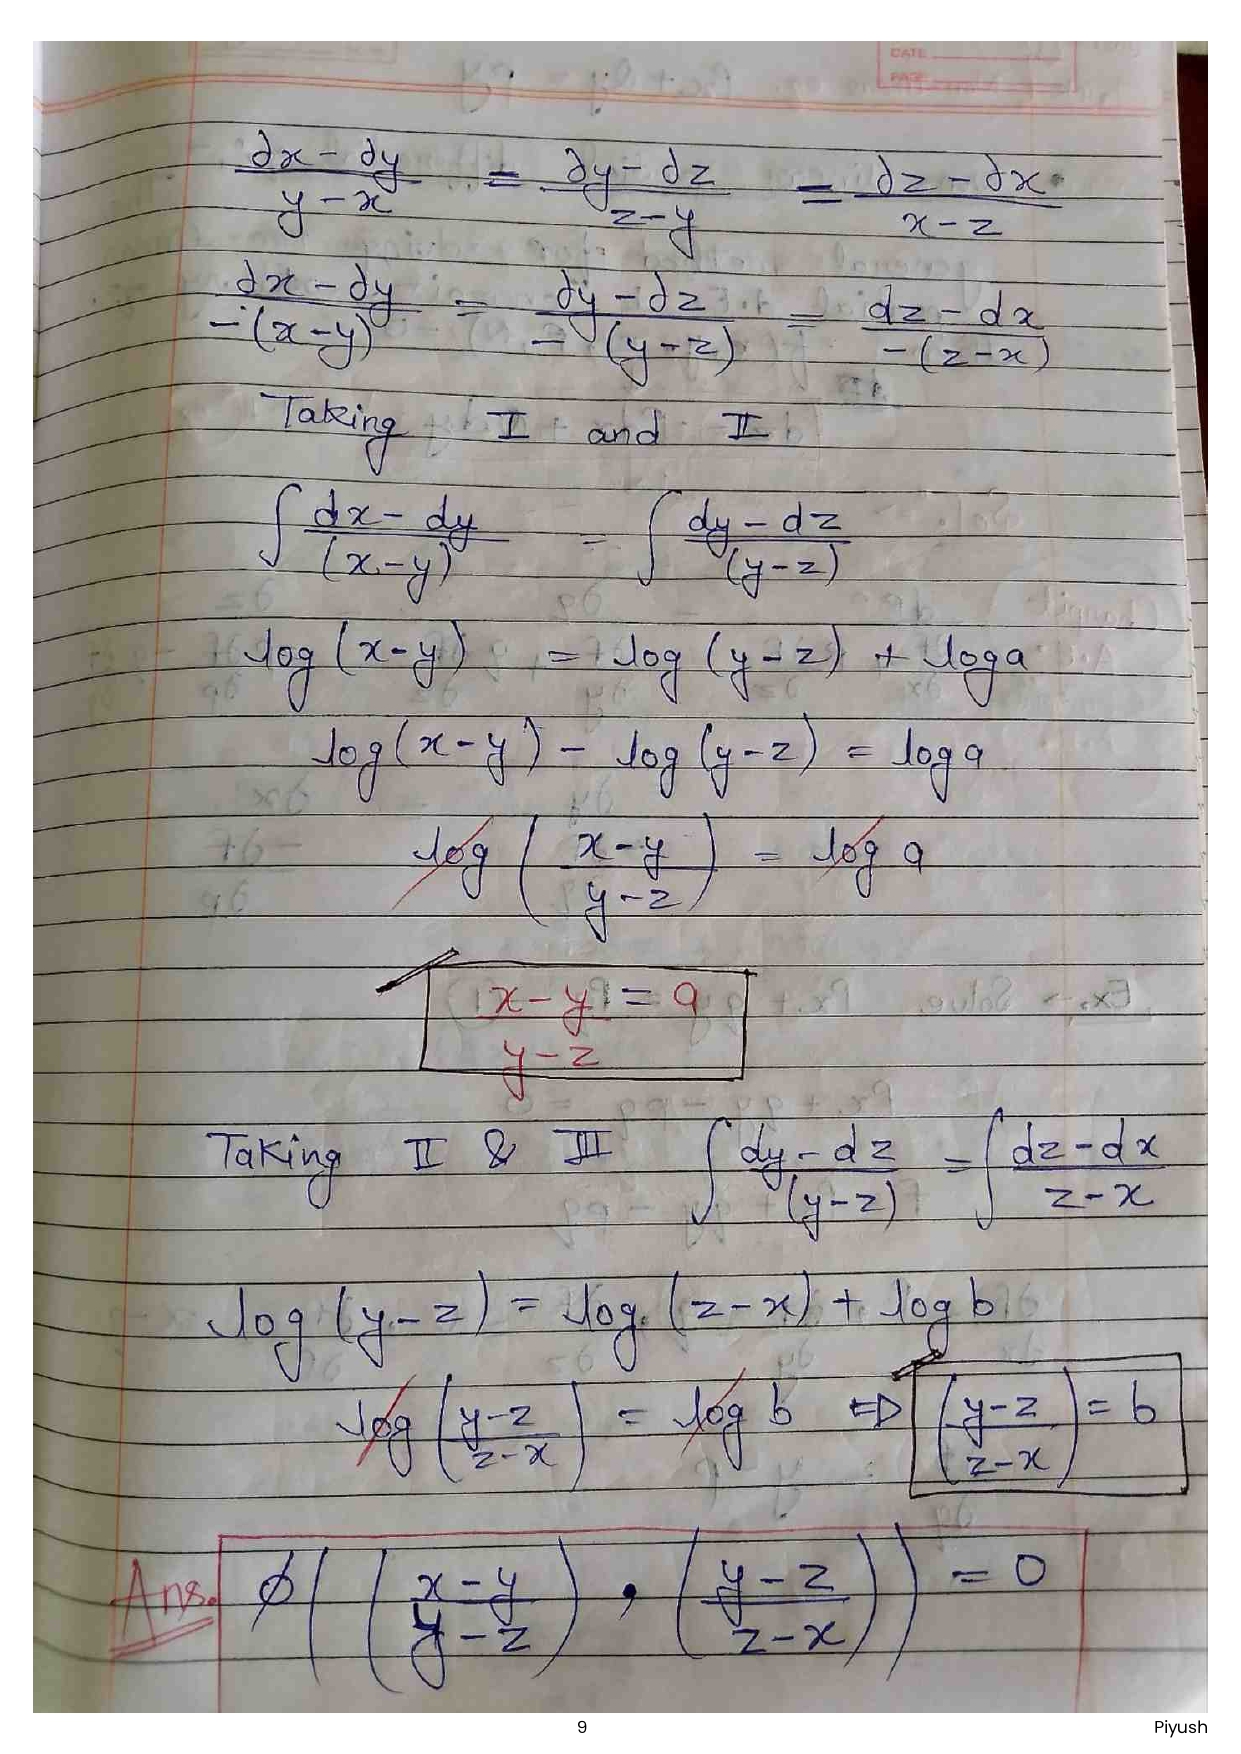 DATE
PAGE
∂x - ∂y / y - x = ∂y - ∂z / z - y = ∂z - ∂x / x - z
∂x - ∂y / -(x - y) = ∂y - ∂z / -(y - z) = dz - dx / -(z - x)
Taking I and II
∫ dx - dy / (x - y) = ∫ dy - dz / (y - z)
log (x - y) = log (y - z) + log a
log (x - y) - log (y - z) = log a
log (x - y / y - z) = log a
x - y / y - z = a
Taking II & III ∫ dy - dz / (y - z) = ∫ dz - dx / z - x
log (y - z) = log. (z - x) + log b
log (y - z / z - x) = log b ⇒ (y - z / z - x) = b
Ans. φ((x - y / y - z), (y - z / z - x)) = 0
9
Piyush